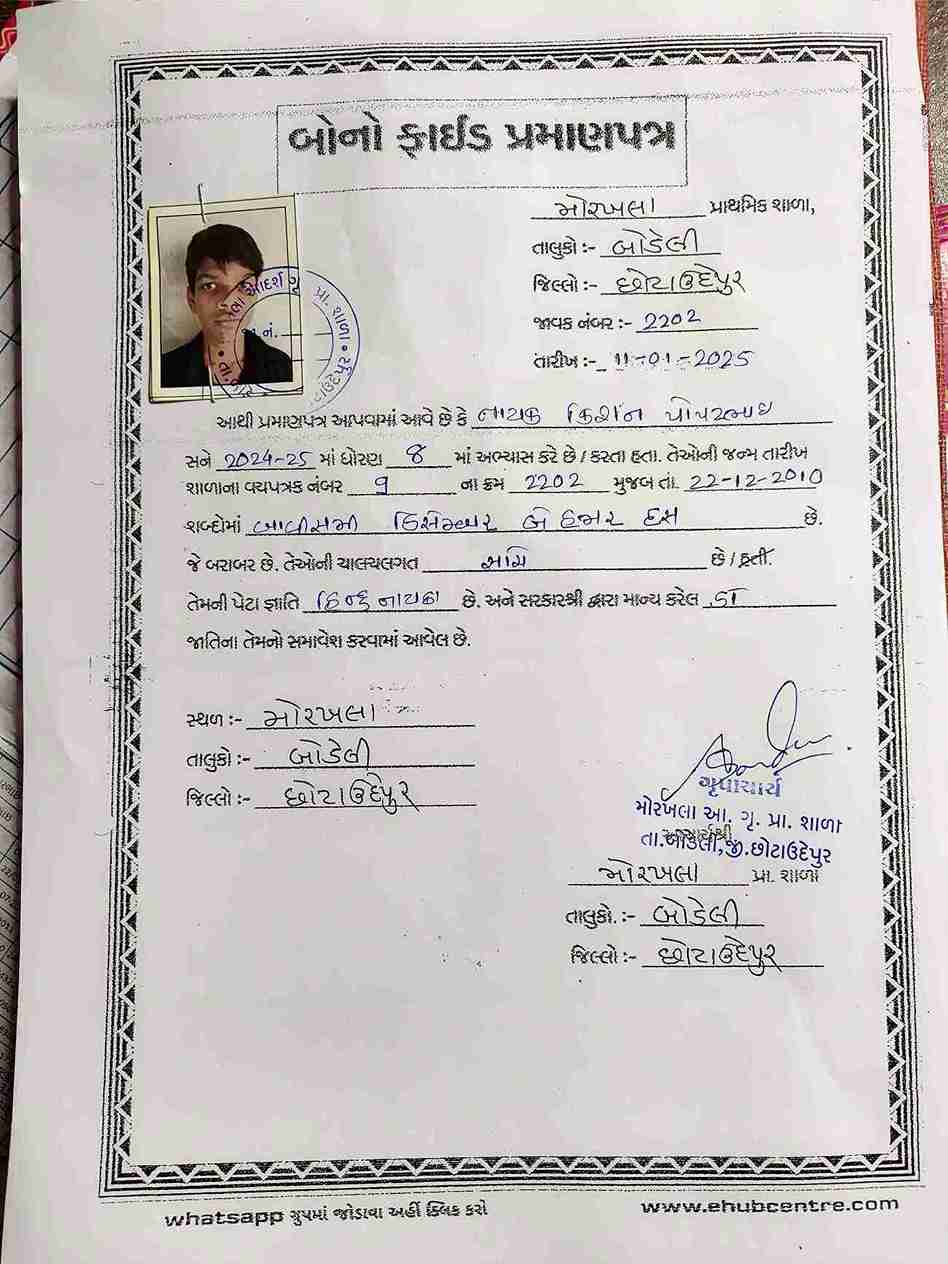 બોનો ફાઈડ પ્રમાણપત્ર
મોરખલા પ્રાથમિક શાળા,
તાલુકો :- બોડેલી
જિલ્લો :- છોટાઉદેપુર
જાવક નંબર :- 2202
તારીખ :- 11-01-2025
આદર્શ પ્રા. શાળા
નં.
આથી પ્રમાણપત્ર આપવામાં આવે છે કે નાયક કિશન પોપટભાઇ
સને 2024-25 માં ધોરણ 8 માં અભ્યાસ કરે છે / કરતા હતા. તેઓની જન્મ તારીખ
શાળાના વયપત્રક નંબર 9 ના ક્રમ 2202 મુજબ તા. 22-12-2010
શબ્દોમાં બાવીસમી ડિસેમ્બર બે હજાર દસ છે.
જે બરાબર છે. તેઓની ચાલચલગત છે / હતી.
તેમની પેટા જ્ઞાતિ હિન્દુ નાયકા છે. અને સરકારશ્રી દ્વારા માન્ય કરેલ
જાતિના તેમનો સમાવેશ કરવામાં આવેલ છે.
સ્થળ :- મોરખલા
તાલુકો :- બોડેલી
જિલ્લો :- છોટાઉદેપુર
ગૃપાચાર્ય
મોરખલા આ. ગૃ. પ્રા. શાળા
આચાર્યશ્રી
તા.બોડેલી,જી.છોટાઉદેપુર
મોરખલા પ્રા. શાળા
તાલુકો. :- બોડેલી
જિલ્લો :- છોટાઉદેપુર
whatsapp ગ્રુપમાં જોડાવા અહીં ક્લિક કરો
www.ehubcentre.com